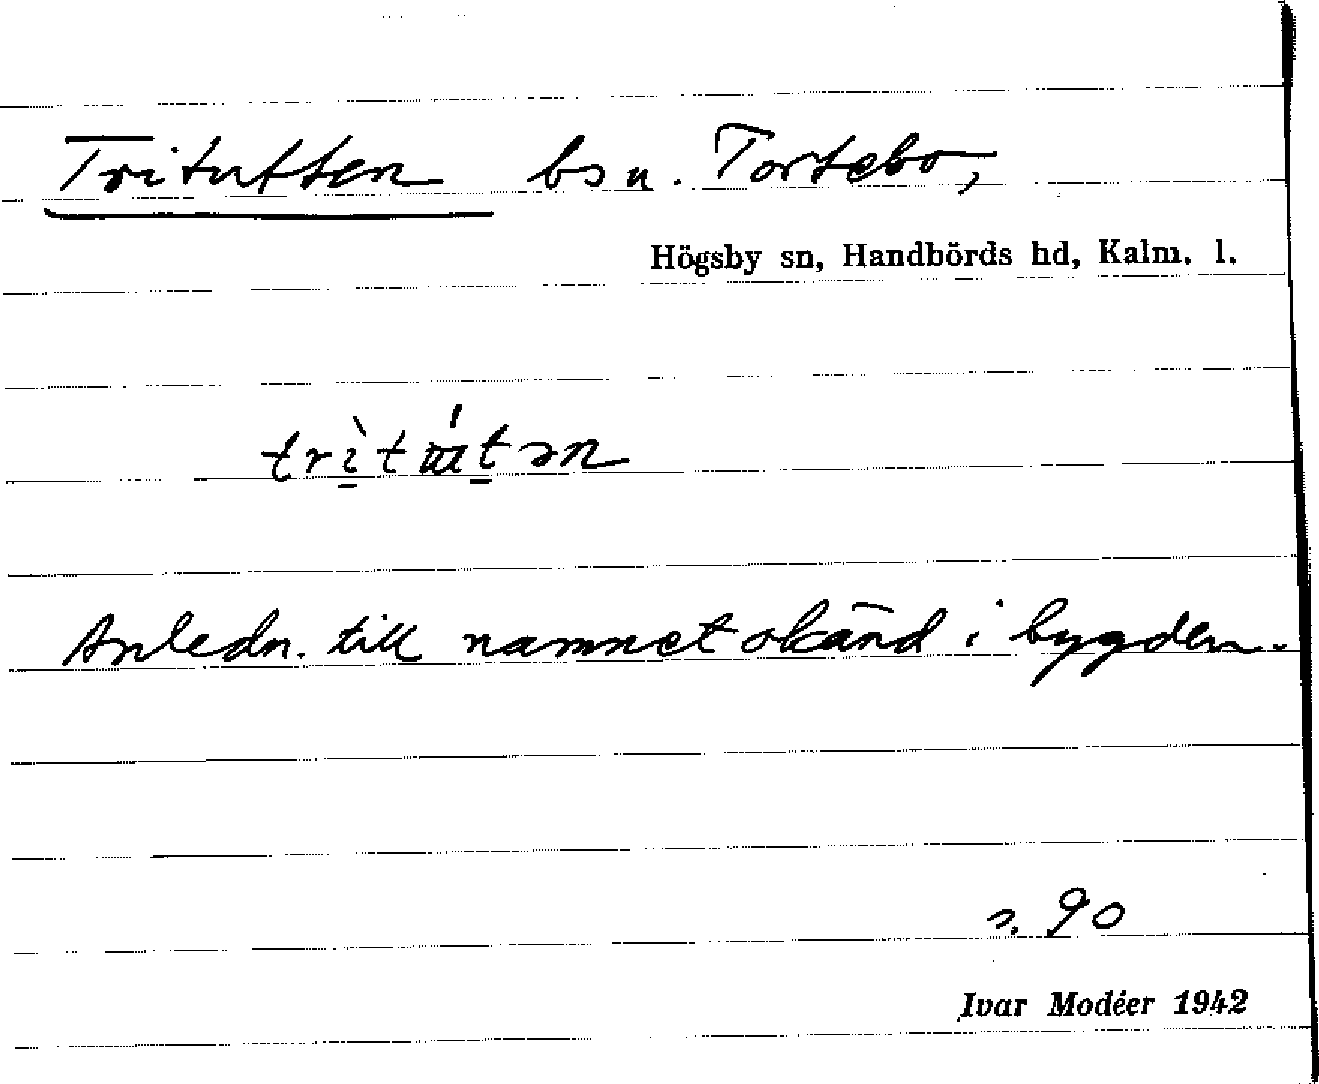 Tritutten bs u. Tortebo,
Högsby sn, Handbörds hd, Kalm. l.
Anledn. till namnet okänd i bygden.
s. 90
Ivar Modéer 1942